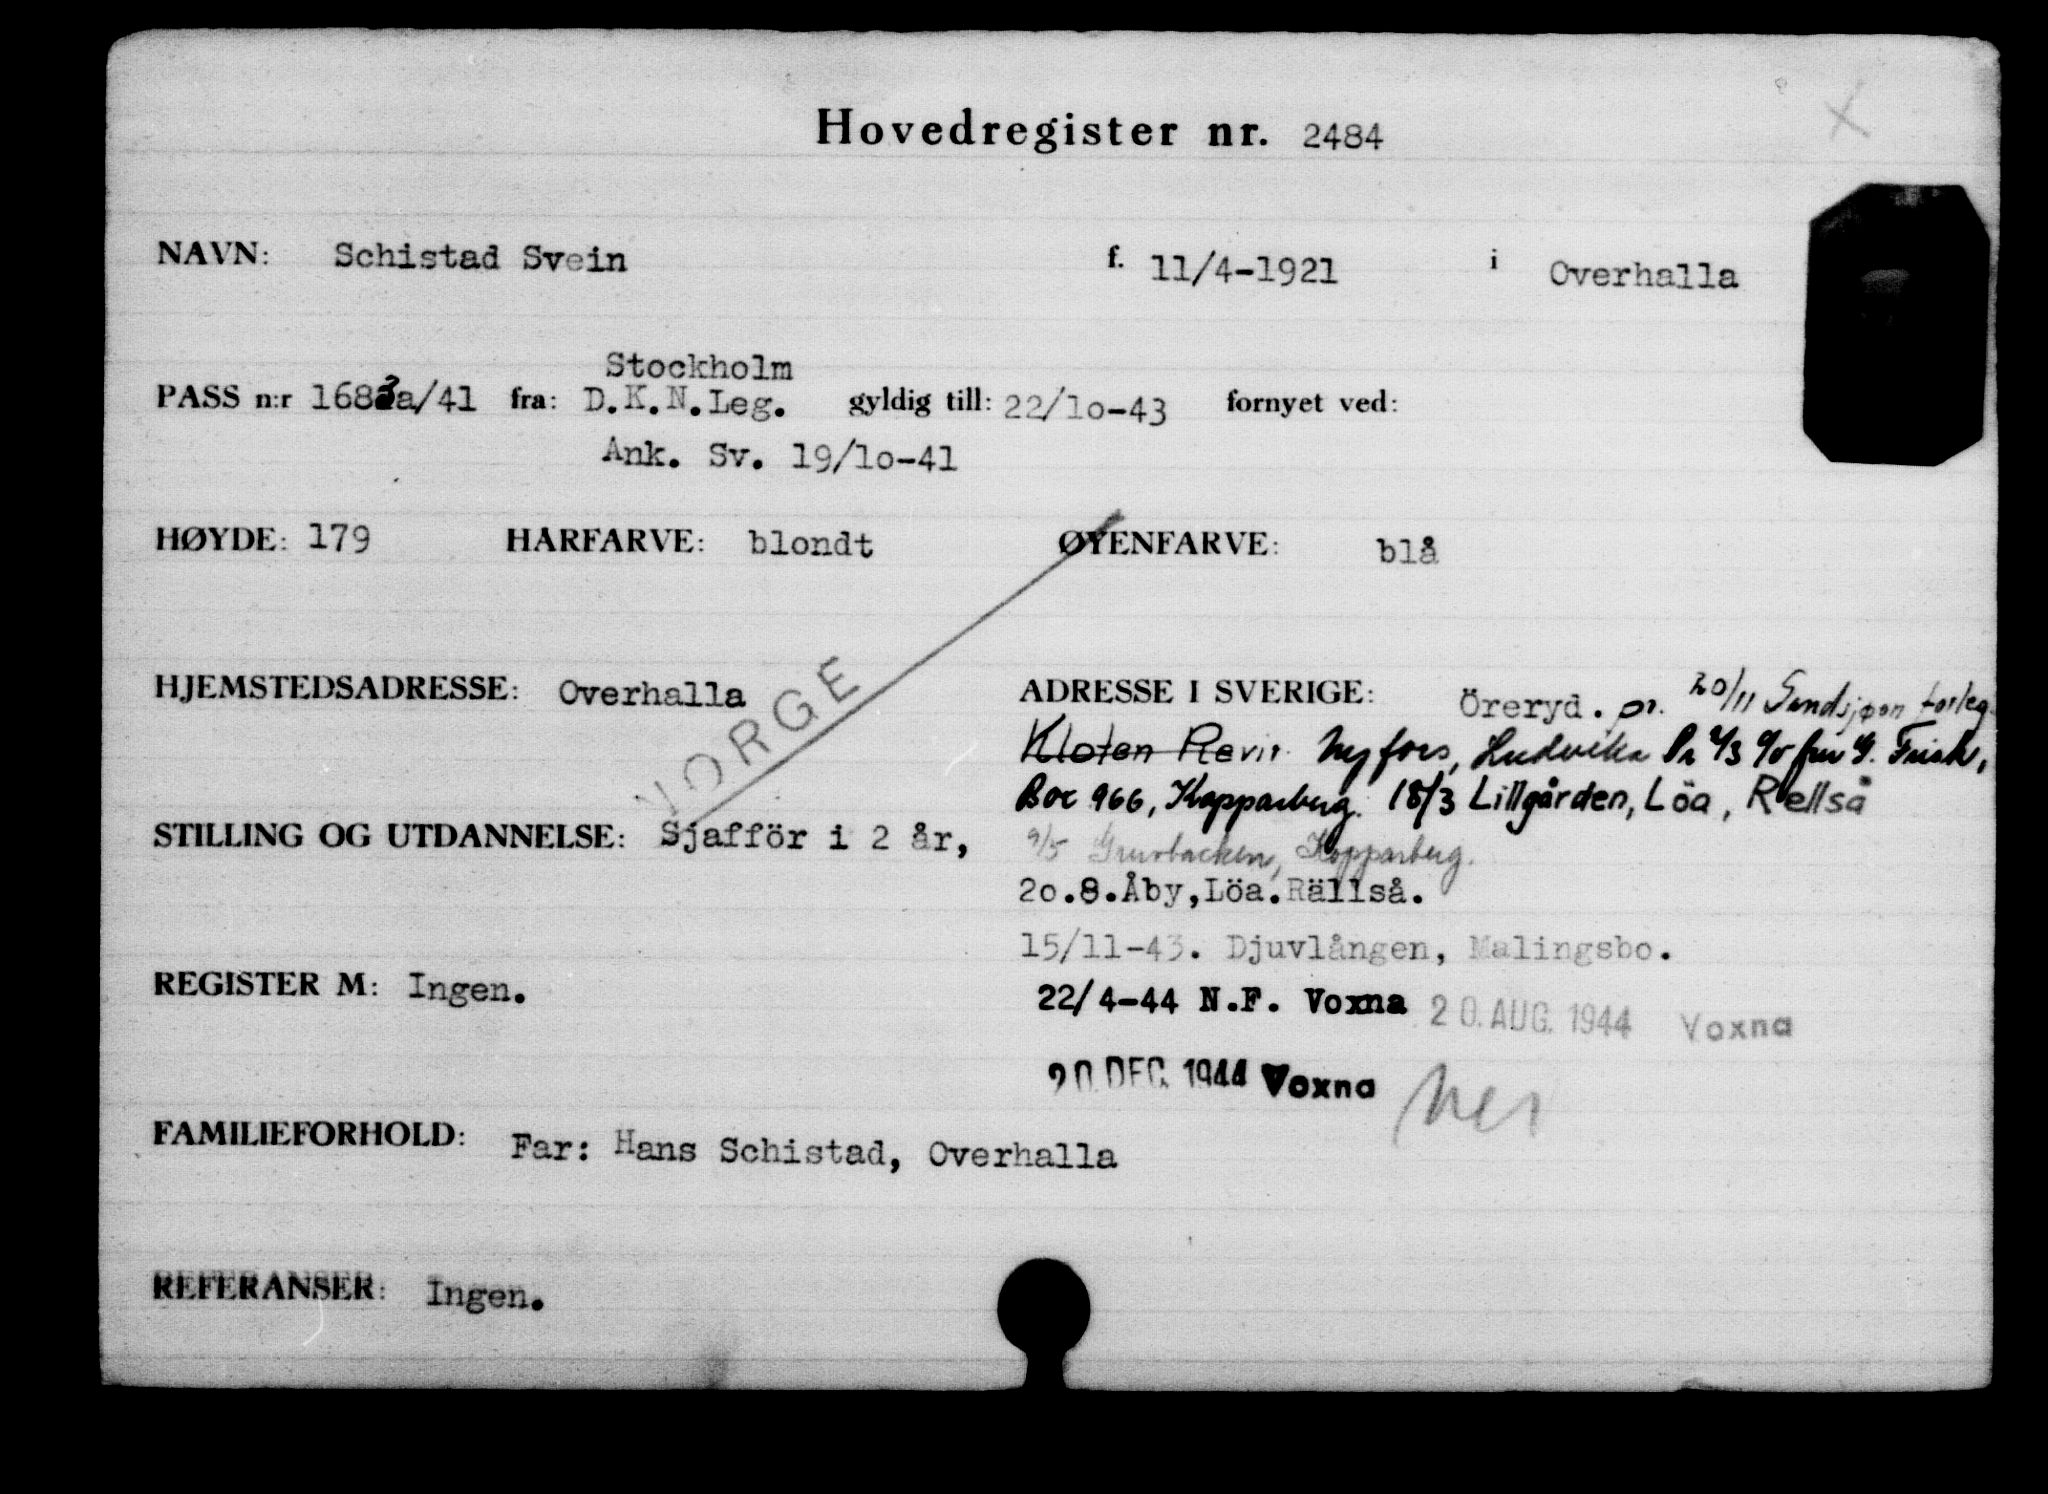 Hovedregister nr. 2484
NAVN: Schistad Svein f. 11/4-1921 i Overhalla
Stockholm
PASS n:r 1683a/41 fra: D.K.N.Leg. gyldig till: 22/lo-43 fornyet ved:
Ank. Sv. 19/lo-41
HØYDE: 179 HÅRFARVE: blondt ØYENFARVE: blå
NORGE
HJEMSTEDSADRESSE: Overhalla
ADRESSE I SVERIGE: Öreryd. pr. 20/11 Sandsjøen forleg.
Kloten Revir. Nyfors, Ludvika Pr 4/3 c/o fru G. Frisk,
Box 966, Kopparberg. 18/3 Lillgården, Löa, Rellså
STILLING OG UTDANNELSE: Sjafför i 2 år,
9/5 Gruvbacken, Kopparberg.
2o.8.Åby,Löa.Rällså.
15/11-43. Djuvlången, Malingsbo.
REGISTER M: Ingen.
22/4-44 N.F. Voxna 20. AUG. 1944 Voxna
20. DEC. 1944 Voxna
FAMILIEFORHOLD: Far: Hans Schistad, Overhalla
REFERANSER: Ingen.